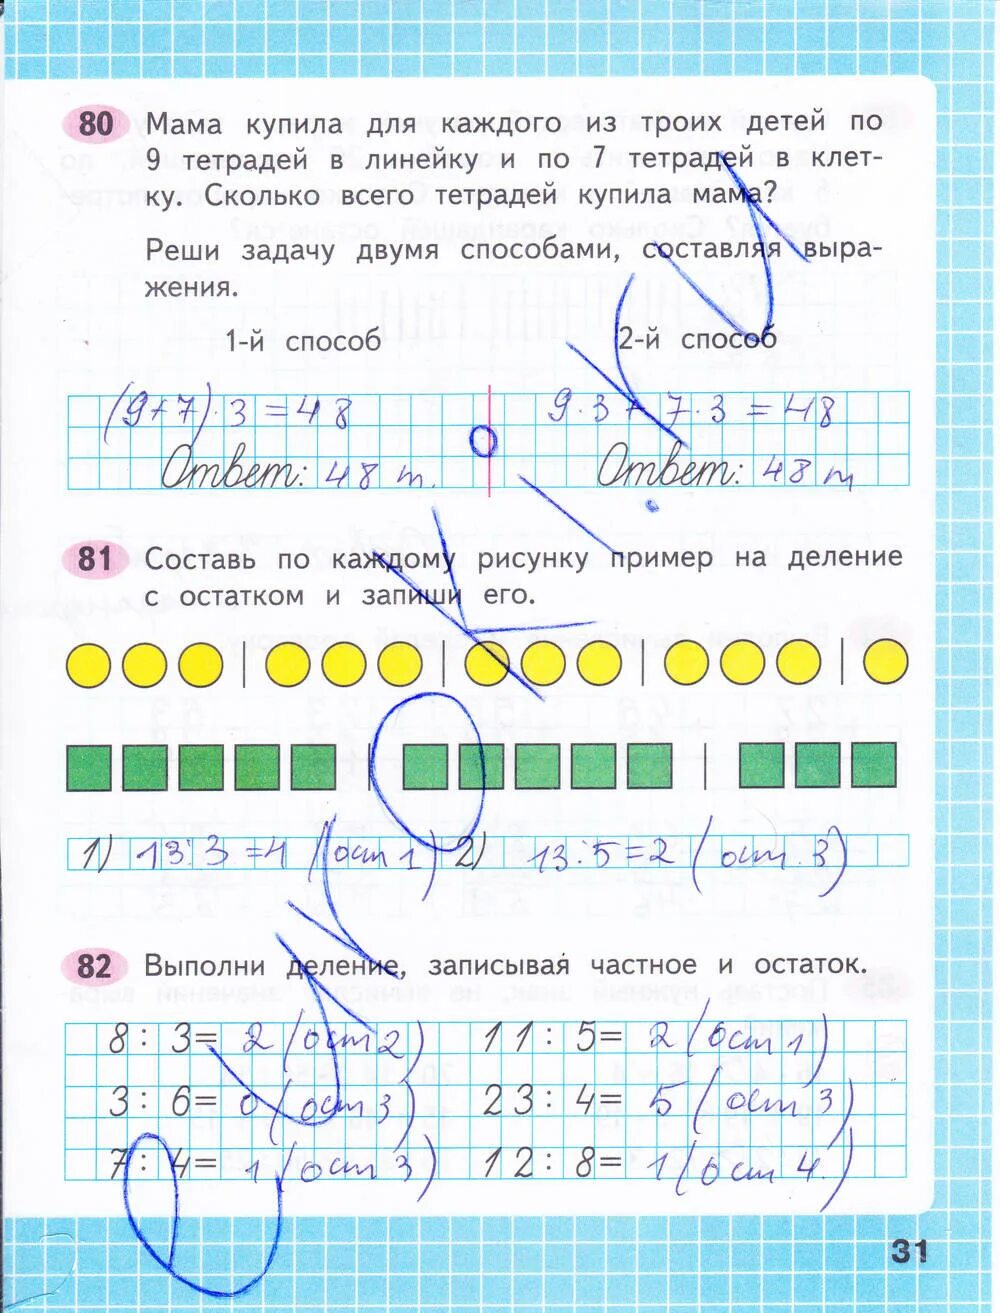 80 Мама купила для каждого из троих детей по
9 тетрадей в линейку и по 7 тетрадей в клет-
ку. Сколько всего тетрадей купила мама?
Реши задачу двумя способами, составляя выра-
жения.
1-й способ 2-й способ
(9+7)·3=48 9·3+7·3=48
Ответ: 48 т. Ответ: 48 т
81 Составь по каждому рисунку пример на деление
с остатком и запиши его.
1) 13:3=4 (ост 1) 2) 13:5=2 (ост.3)
82 Выполни деление, записывая частное и остаток.
8:3= 2 (ост 2) 11:5= 2 (ост 1)
3:6= 0 (ост 3) 23:4= 5 (ост 3)
7:4= 1 (ост 3) 12:8= 1 (ост 4.)
31